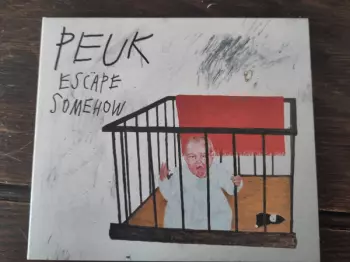 PEUK
ESCAPE
SOMEHOW